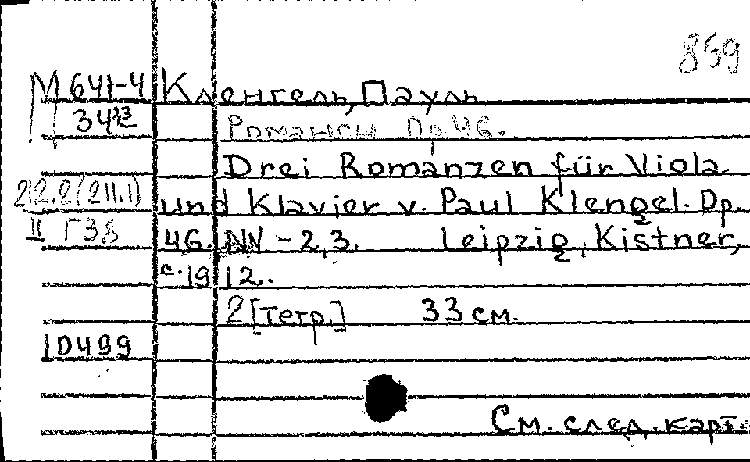 859
М 641-4 Кленгель, Пауль
34 23 Романсы Op 46.
Drei Romanzen für Viola
2I2.2(2II.1) und Klavier v. Paul Klengel. Op.
II Г38 46. NN - 2,3. Leipzig, Kistner,
c. 1912.
2 [тетр.] 33 см.
10499
См. след. карт.